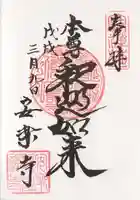 奉拝
本尊 釈迦如来
戊戌
三月九日
安楽寺